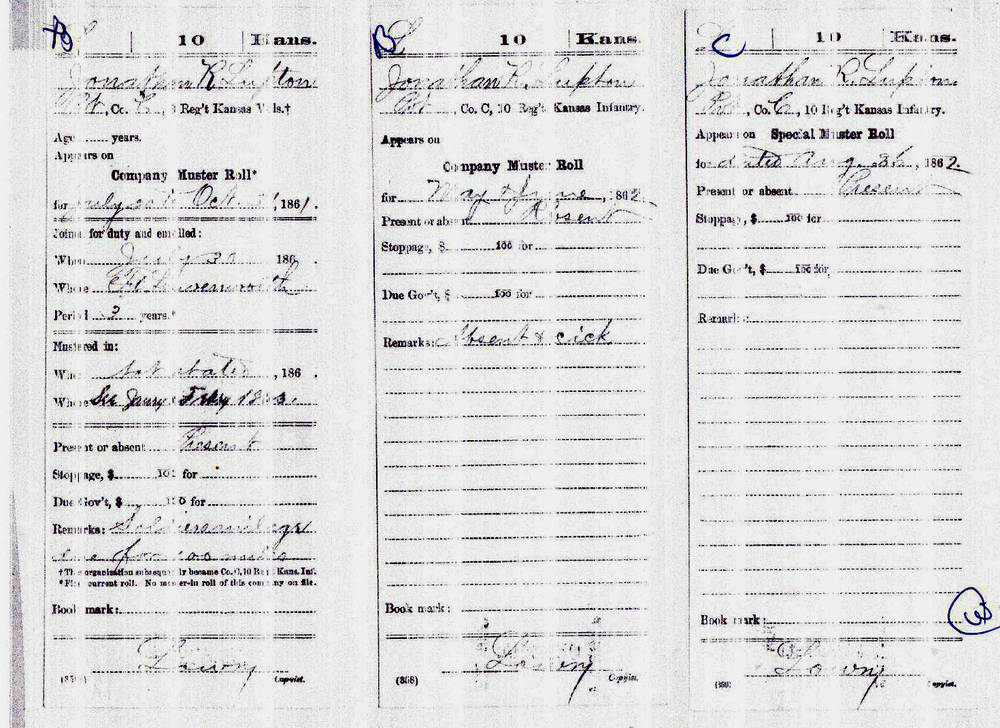 B
10 | Kans.
Jonathan R. Lupton
Pvt, Co. C, 8 Reg't Kansas Vols.†
Age ...... years.
Appears on
Company Muster Roll*
for July to Oct 31, 1861.
Joined for duty and enrolled:
When July 30 186 .
Where Ft Leavenworth
Period 3 years.*
Mustered in:
When Not stated, 186 .
Where See Jany & Feby 1863.
Present or absent Present
Stoppage, $ 100 for
Due Gov't, $ 100 for
Remarks: Soldiers milage
due for 100 miles
†This organization subsequently became Co. C, 10 Reg't Kans. Inf.
*First current roll. No muster-in roll of this company on file.
Book mark:
Lowry
(358) Copyist.
B
L | 10 | Kans.
Jonathan R. Lupton
Pvt, Co. C, 10 Reg't Kansas Infantry.
Appears on
Company Muster Roll
for May & June, 1862.
Present or absent
Stoppage, $ 100 for
Due Gov't, $ 100 for
Remarks: Absent & cick
Book mark:
Lowry
(358) Copyist.
C
10 | Kans.
Jonathan R. Lupton
Pvt, Co. C, 10 Reg't Kansas Infantry.
Appears on Special Muster Roll
for dated Aug. 1862.
Present or absent Present
Stoppage, $ 100 for
Due Gov't, $ 100 for
Remarks:
Book mark:
Lowry
Copyist.